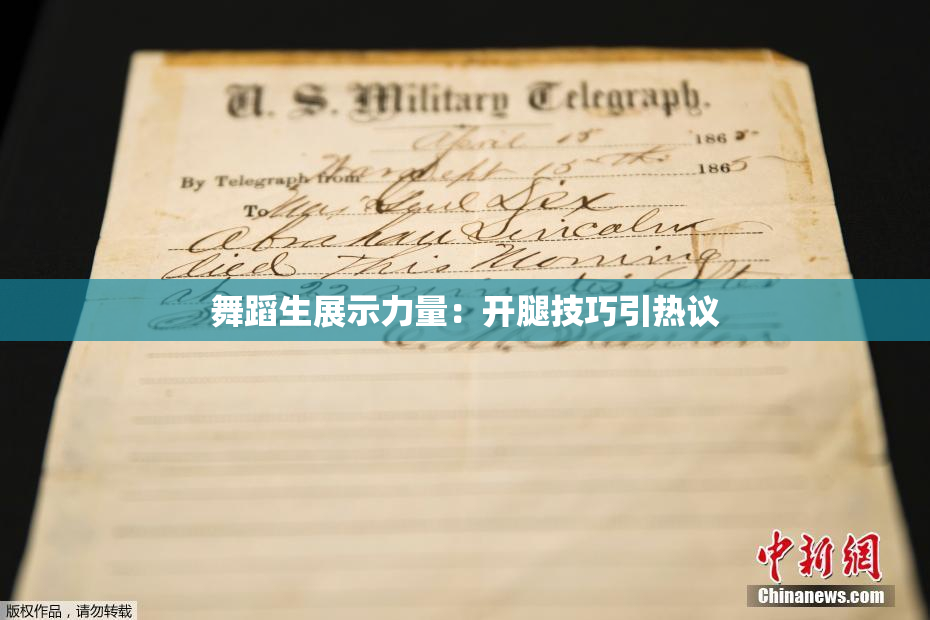 U. S. Military Telegraph.
April 15 1865
1865
By Telegraph from
To Maj Genl Dix
Abraham Lincoln
died This Morning
at 22 minutes after
舞蹈生展示力量：开腿技巧引热议
Stanton
中新网
Chinanews.com
版权作品，请勿转载